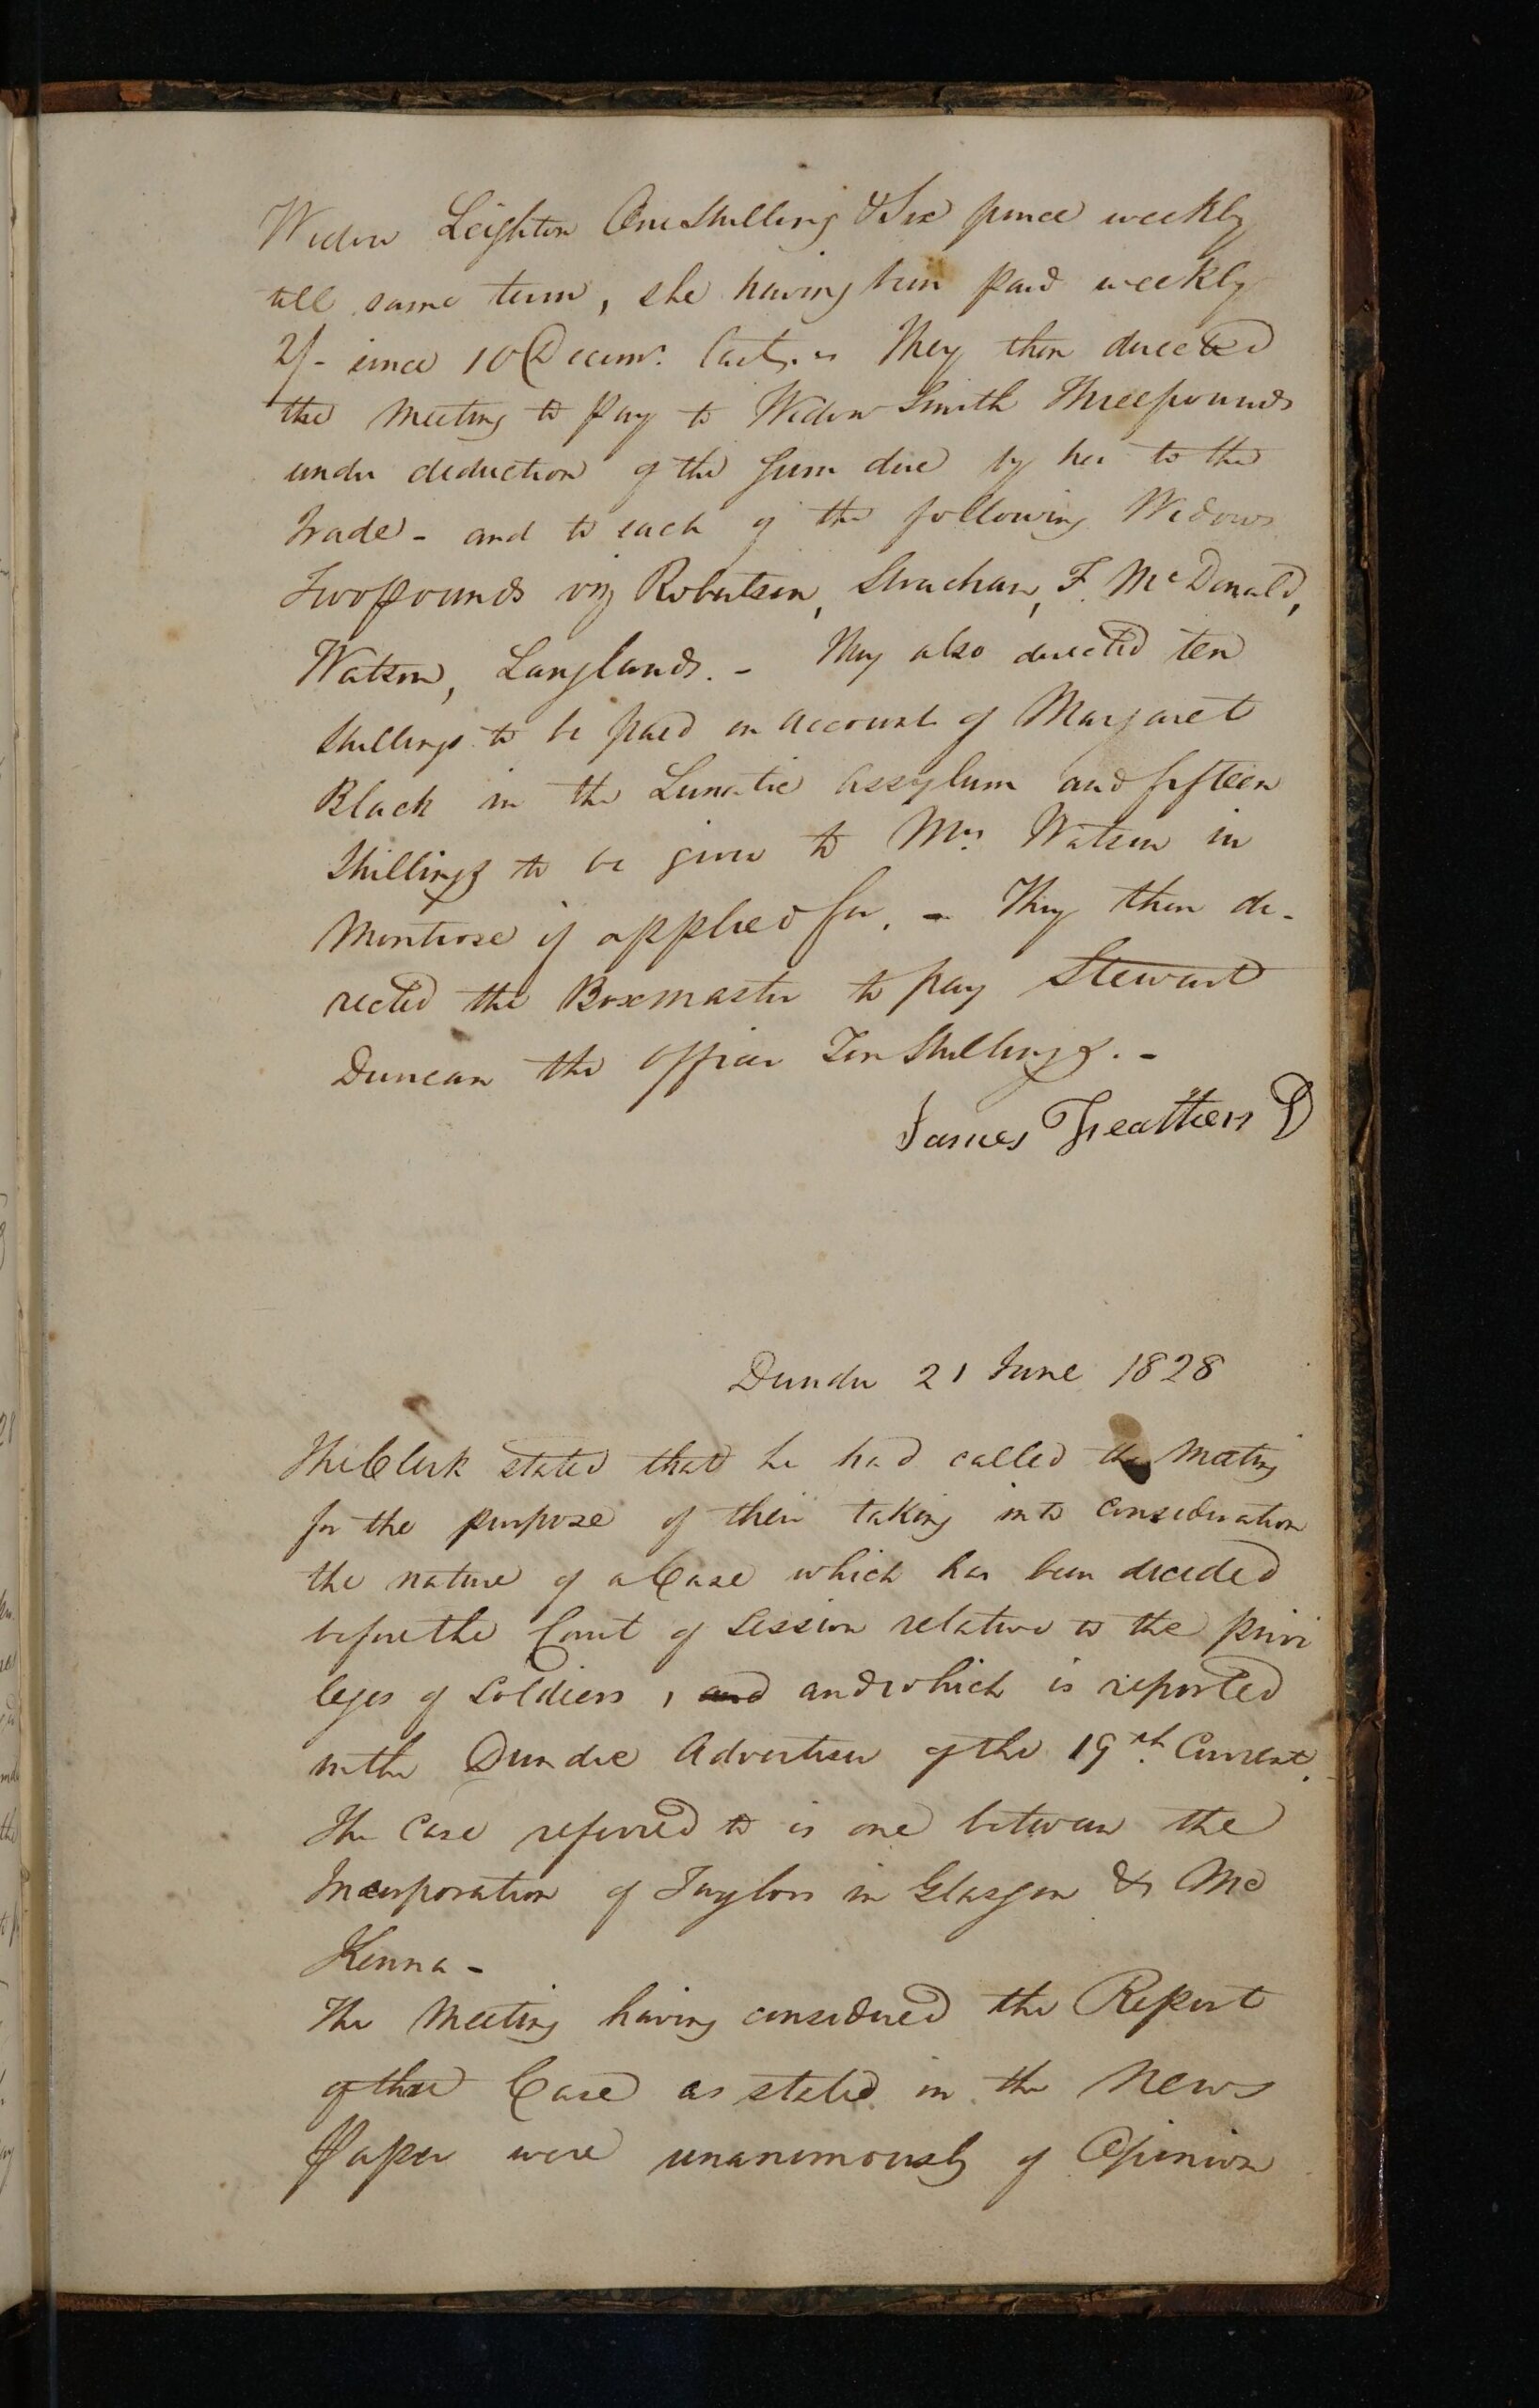 Widow Leighton One Shilling & Six pence weekly
till same term, she having been paid weekly
2/- since 10 Decemr. last. - They then directed
the Meeting to pay to Widow Smith Three pounds
under deduction of the sum due by her to the
Trade - and to each of the following Widows
Two pounds viz Robertson, Strachan, F. McDonald,
Watson, Langlands. - They also directed ten
Shillings to be paid on account of Margaret
Black in the Lunatic Assylum and fifteen
Shillings to be given to Mrs. Watson in
Montrose if applied for. - They then di-
rected the Boxmaster to pay Stewart
Duncan the Officer Ten Shillings. -
James Feathers D
Dundee 21 June 1828
The Clerk stated that he had called the Meeting
for the purpose of their taking into consideration
the nature of a Case which has been decided
before the Court of Session relative to the privi
leges of Soldiers, and and which is reported
in the Dundee Advertiser of the 19th. Current.
The Case referred to is one between the
Incorporation of Taylors in Glasgow & Mc
Kenna -
The Meeting having considered the Report
of the Case as stated in the News
Paper were unanimously of Opinion